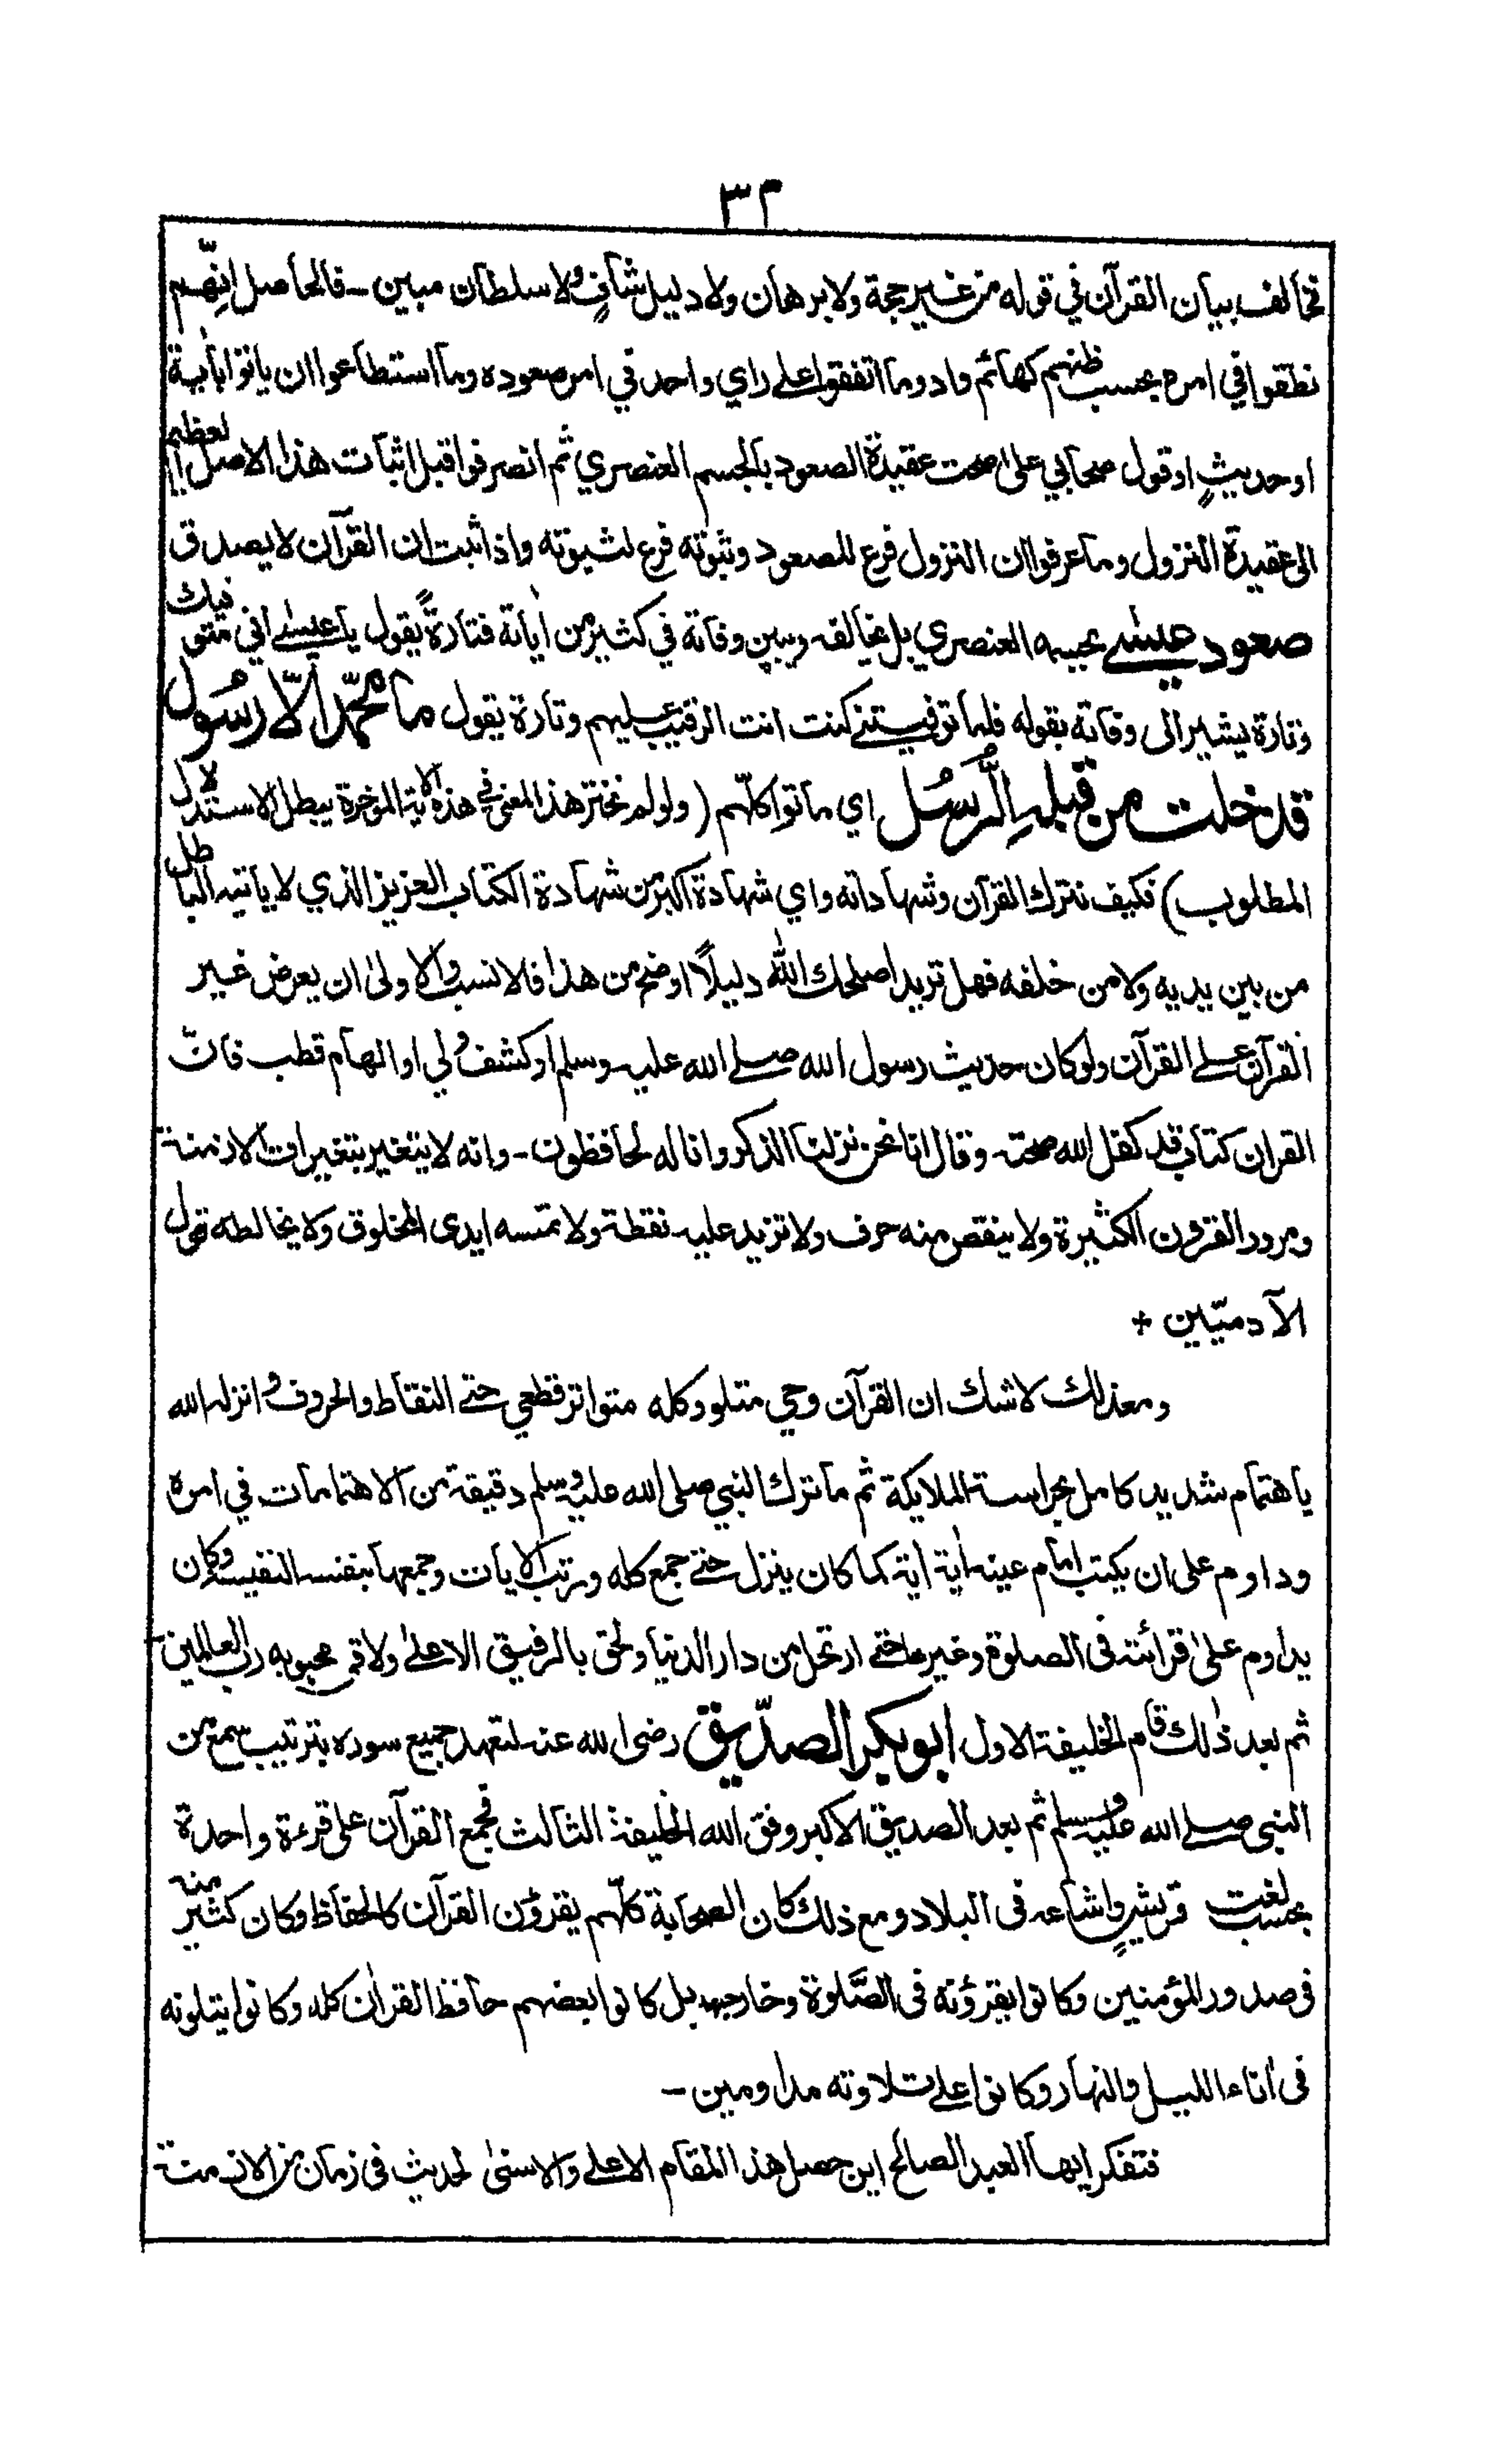 ٣٢
تخالف بيان القرآن في قوله من غير حجة ولا برهان ولا دليل شافٍ ولا سلطان مبين - فالحاصل انّهم
نطقوا في امره بحسب ظنهم كهائم واد وما اتفقوا على راي واحد في امر صعوده وما استطاعوا ان ياتوا بآية
او حديثٍ او قول صحابي على صحت عقيدة الصعود بالجسم العنصري ثم انصرفوا قبل اثبات هذا الاصل العظيم
الى عقيدة النزول وما عرفوا ان النزول فرع للصعود وثبوته فرع لثبوته واذا ثبت ان القرآن لا يصدق
صعود عيسى بجسمه العنصري بل يخالفه ويبين وفاته في كثير من اٰياته فتارةً يقول يا عيسى اني متوفيك
وتارة يشير الى وفاته بقوله فلما توفيتني كنت انت الرقيب عليهم وتارة يقول ما محمّد الّا رسُول
قد خلت من قبلهِ الرُّسُل اي ماتوا كلّهم (ولو لم نختر هذا المعنى في هذه الآية المؤخرة يبطل الاستدلال
المطلوب) فكيف نترك القرآن وشهاداته واي شهادة اكبر من شهادة الكتاب العزيز الذي لا ياتيه الباطل
من بين يديه ولا من خلفه فهل تريد اصلحك الله دليلًا اوضح من هذا فالانسب والاولىٰ ان يعرض غير
القرآن على القرآن ولو كان حديث رسول الله صلى الله عليه وسلم او كشف ولي او الهام قطب فانّ
القران كتاب قد كفل الله صحته وقال انا نحن نزلنا الذكر وانا له لحافظون - وانه لا يتغير بتغيرات الازمنة
ومرور القرون الكثيرة ولا ينقص منه حرف ولا تزيد عليه نقطة ولا تمسه ايدى المخلوق ولا يخالطه قول
الآدميّين +
ومعذلك لا شك ان القرآن وحي متلو وكله متواتر قطعي حتى النقاط والحروف وانزله الله
باهتمام شديد كامل بحراسة الملايكة ثم ما ترك النبي صلى الله عليه وسلم دقيقة من الاهتمامات في امره
وداوم على ان يكتب امام عينه اٰية اٰية كما كان ينزل حتى جمع كله ورتب الايات وجمعها بنفسه النفيسة وكان
يداوم علىٰ قرائته فى الصلوة وغيرها حتى ارتحل من دار الدنيا ولحق بالرفيق الاعلىٰ ولاقى محبوبه رب العالمين -
ثم بعد ذٰلك قام الخليفة الاول ابوبكر الصدّيق رضى الله عنه لتعهد جميع سوره بترتيب سمع من
النبى صلى الله عليه وسلم ثم بعد الصديق الاكبر وفق الله الخليفة الثالث فجمع القرآن على قرءة واحدة
بحسب لغت قريشٍ واشاعه فى البلاد ومع ذلك كان الصحابة كلّهم يقرؤن القرآن كالحفاظ وكان كثير منه
فى صدور المؤمنين وكانوا يقرؤنه فى الصَّلوة وخارجها بل كانوا بعضهم حافظ القراٰن كله وكانوا يتلونه
فى اٰناء الليل والنهار وكانوا على تلاوته مداومين -
فتفكر ايها العبد الصالح اين حصل هذا المقام الاعلى والاسنىٰ لحديث فى زمان من الازمنة